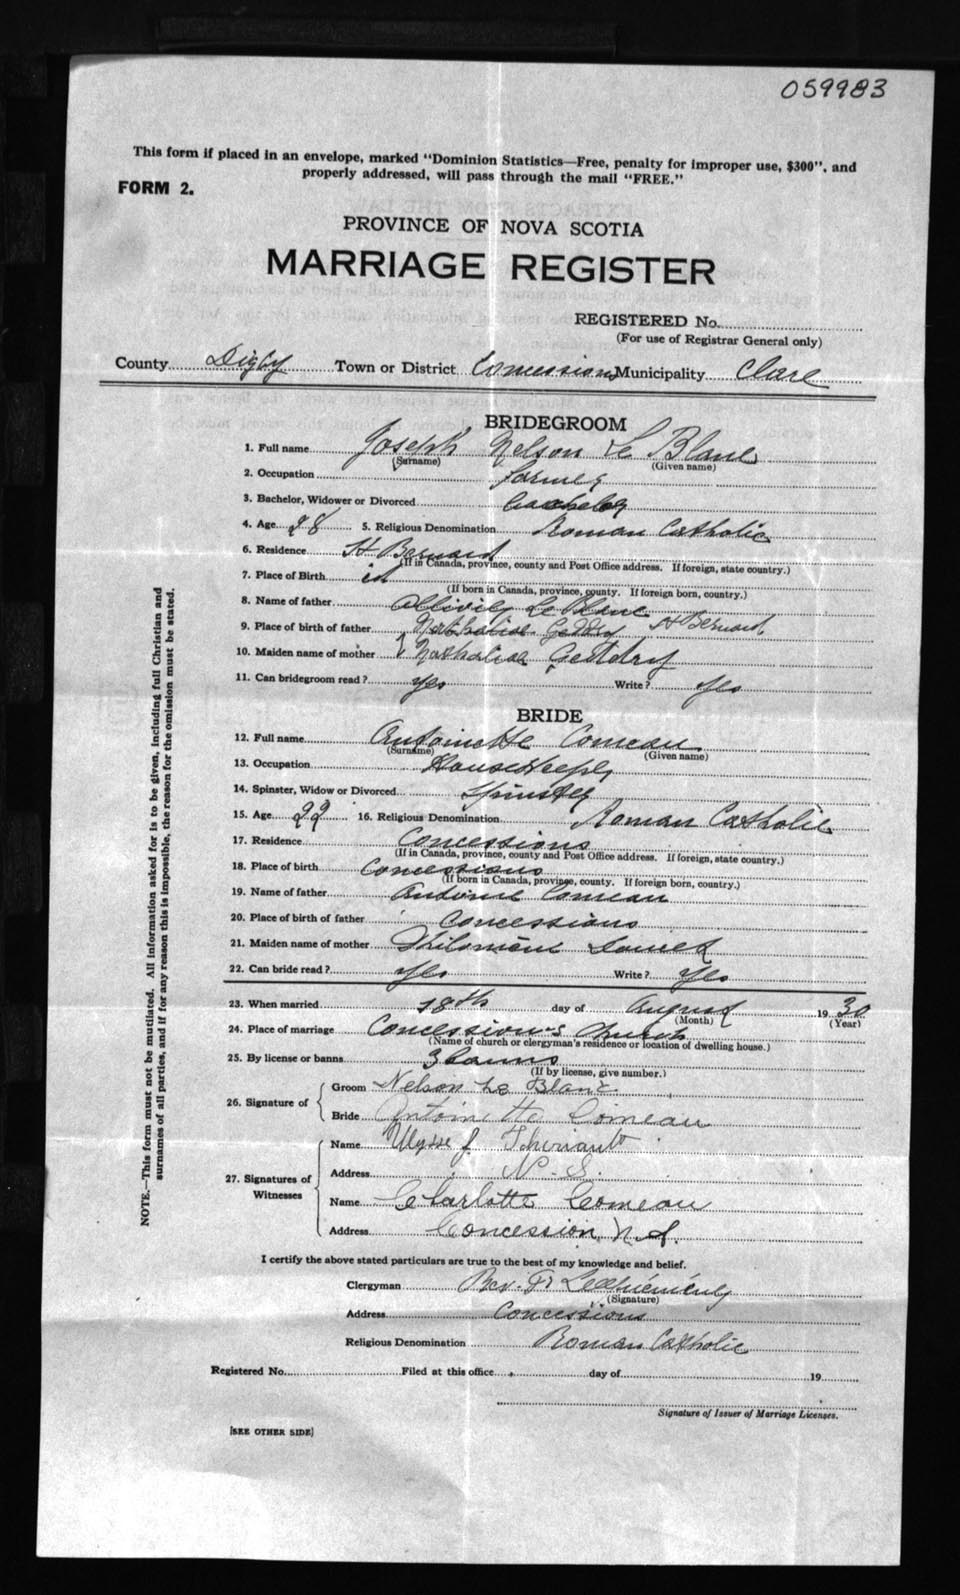 059983
This form if placed in an envelope, marked "Dominion Statistics—Free, penalty for improper use, $300", and
properly addressed, will pass through the mail "FREE."
FORM 2.
PROVINCE OF NOVA SCOTIA
MARRIAGE REGISTER
REGISTERED No.
(For use of Registrar General only)
County Digby Town or District Concessions Municipality Clare
BRIDEGROOM
1. Full name Joseph Nelson Le Blanc
(Surname) (Given name)
2. Occupation farmer
3. Bachelor, Widower or Divorced bachelor
4. Age 28 5. Religious Denomination Roman Catholic
6. Residence St Bernard
(If in Canada, province, county and Post Office address. If foreign, state country.)
7. Place of Birth id
(If born in Canada, province, county. If foreign born, country.)
8. Name of father Le Blanc
9. Place of birth of father Nathalie Geddry St Bernard
10. Maiden name of mother Nathalie Geddry
11. Can bridegroom read? yes Write? yes
BRIDE
12. Full name Antoinette Comeau
(Surname) (Given name)
13. Occupation HouseKeeper
14. Spinster, Widow or Divorced Spinster
15. Age 22 16. Religious Denomination Roman Catholic
17. Residence Concessions
(If in Canada, province, county and Post Office address. If foreign, state country.)
18. Place of birth Concessions
(If born in Canada, province, county. If foreign born, country.)
19. Name of father Comeau
20. Place of birth of father Concessions
21. Maiden name of mother
22. Can bride read? yes Write? yes
23. When married 18th day of August 1930
(Month) (Year)
24. Place of marriage Concessions Church
(Name of church or clergyman's residence or location of dwelling house.)
25. By license or banns 3 banns
(If by license, give number.)
26. Signature of
Groom Nelson Le Blanc
Bride Antoinette Comeau
27. Signatures of Witnesses
Name Ulysse J. Theriault
Address N. S.
Name Charlotte Comeau
Address Concession, N. S.
I certify the above stated particulars are true to the best of my knowledge and belief.
Clergyman Rev. Fr
(Signature)
Address Concessions
Religious Denomination Roman Catholic
Registered No. Filed at this office day of 19
Signature of Issuer of Marriage Licenses.
[SEE OTHER SIDE]
NOTE.—This form must not be mutilated. All information asked for is to be given, including full Christian and
surnames of all parties, and if for any reason this is impossible, the reason for the omission must be stated.